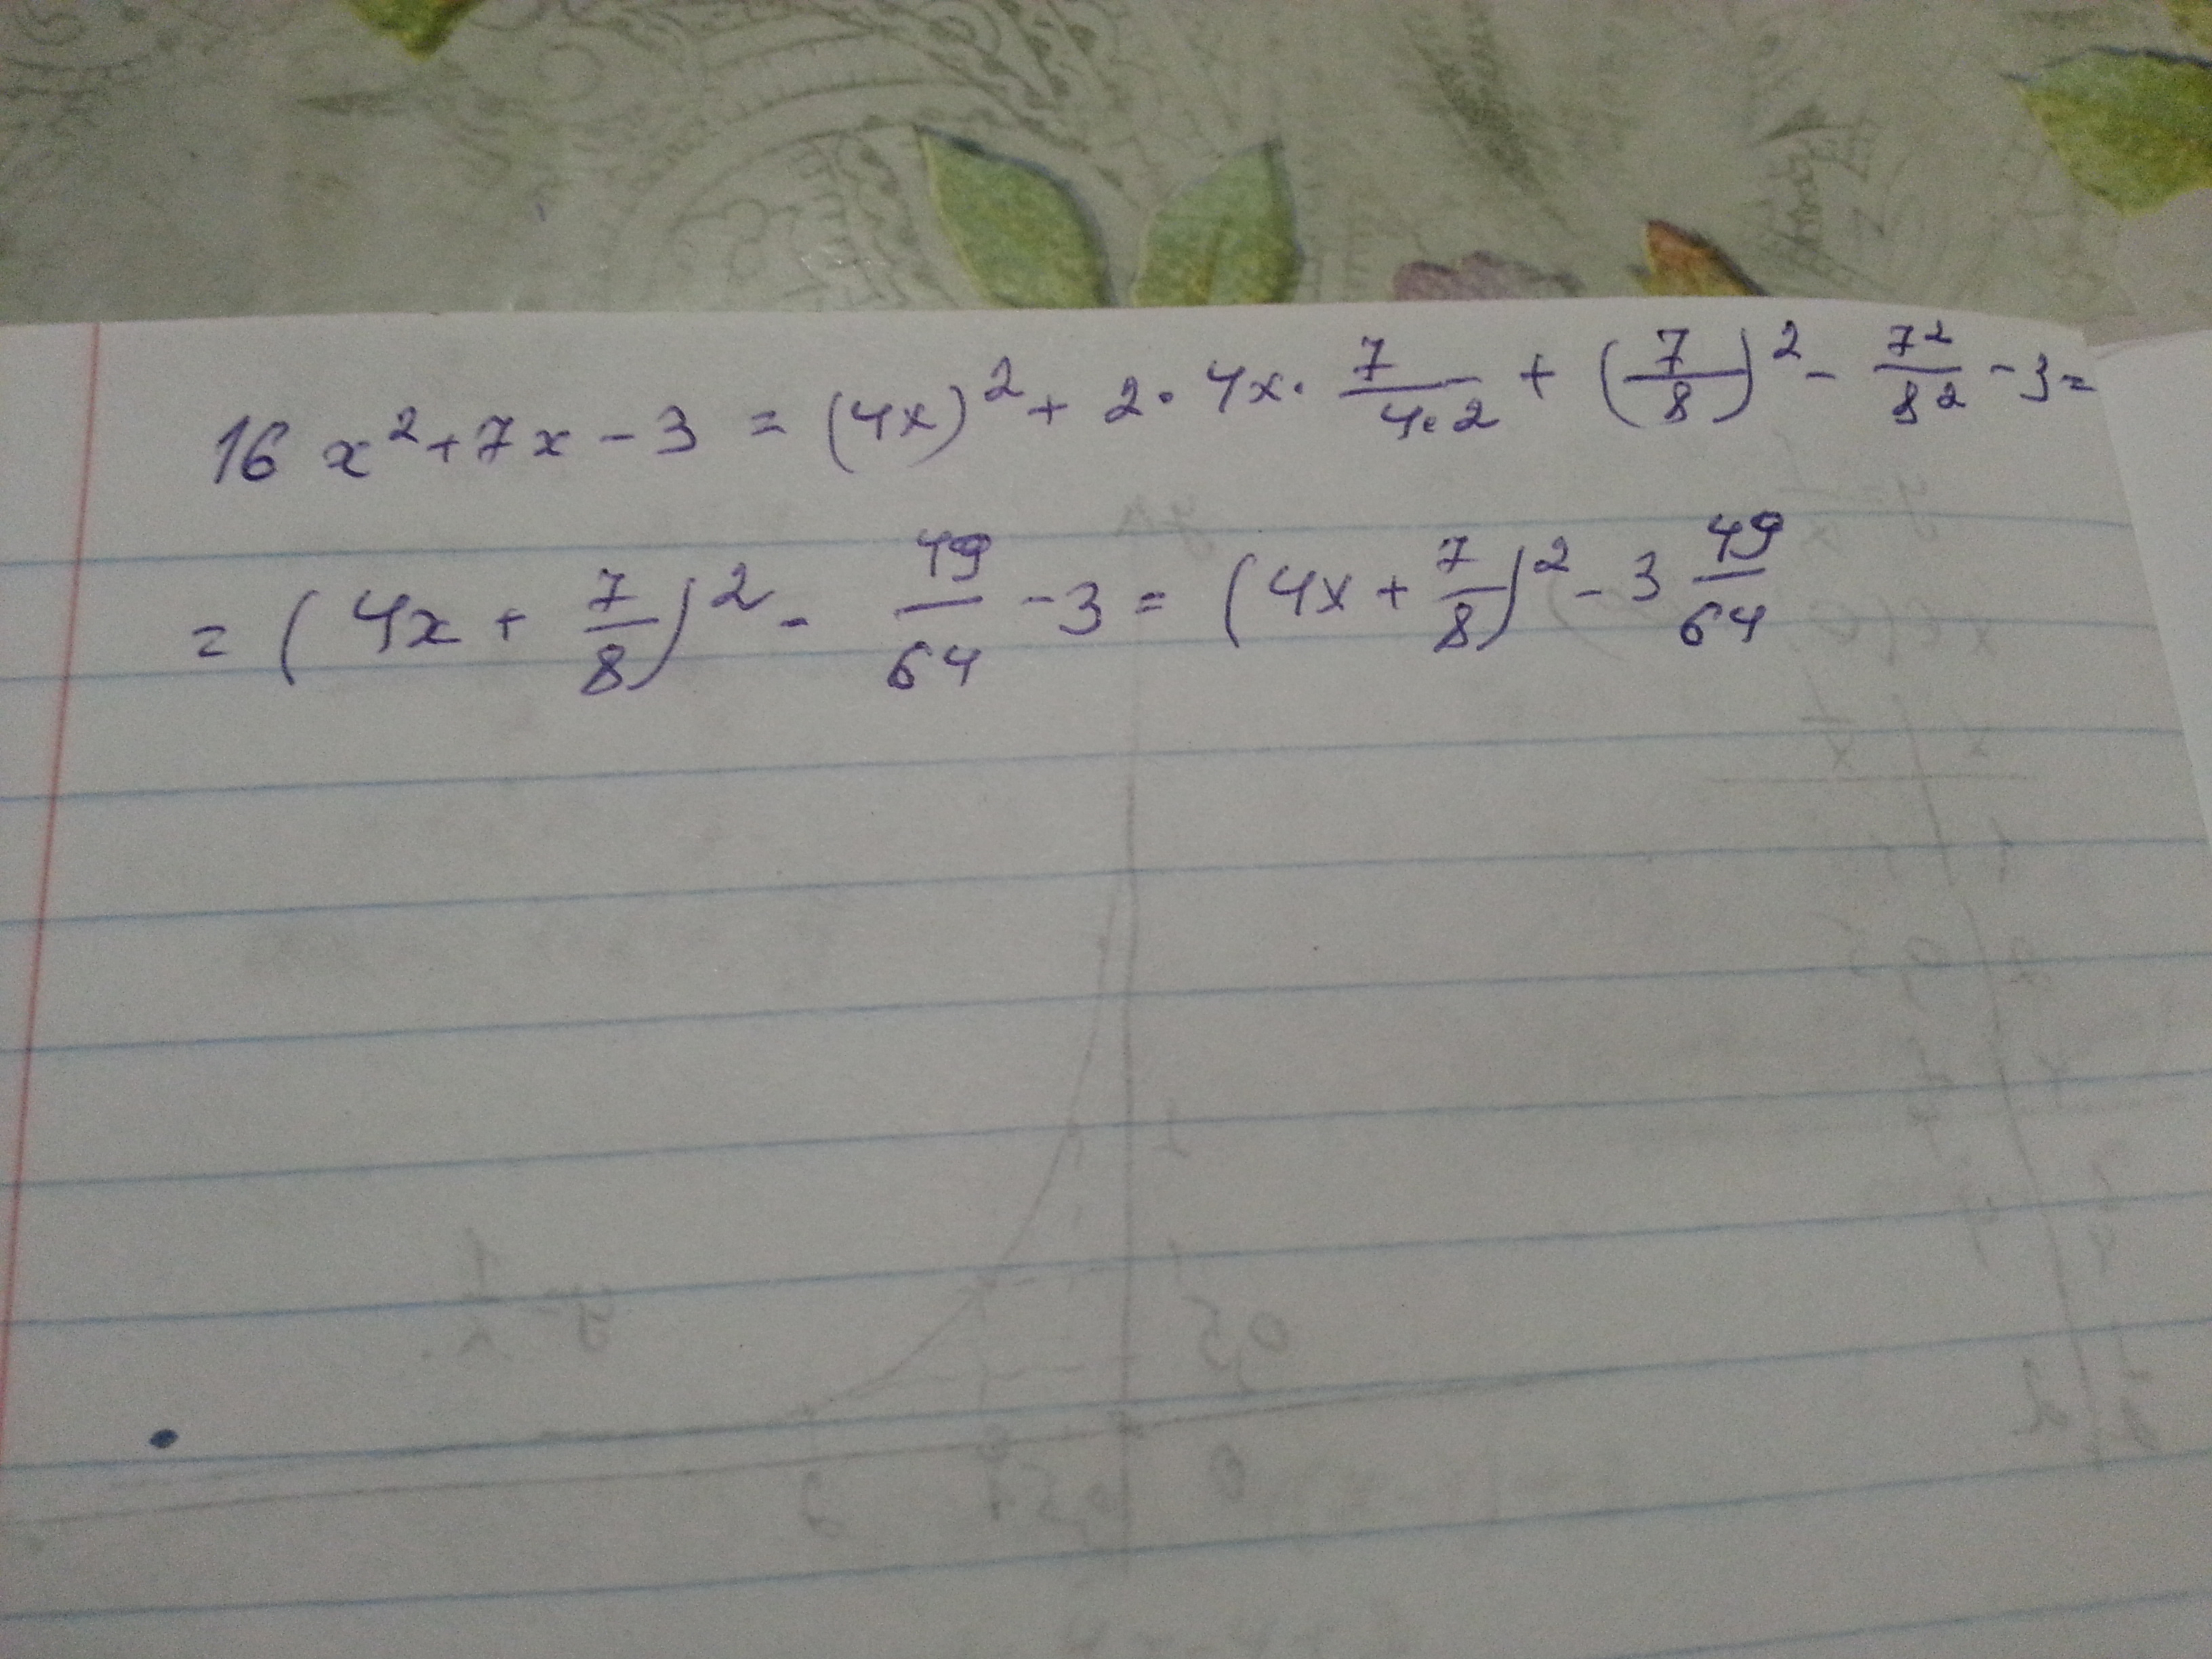 16 x² + 7x - 3 = (4x)² + 2 · 4x · 7/(4·2) + (7/8)² - 7²/8² - 3 =
= (4x + 7/8)² - 49/64 - 3 = (4x + 7/8)² - 3 49/64